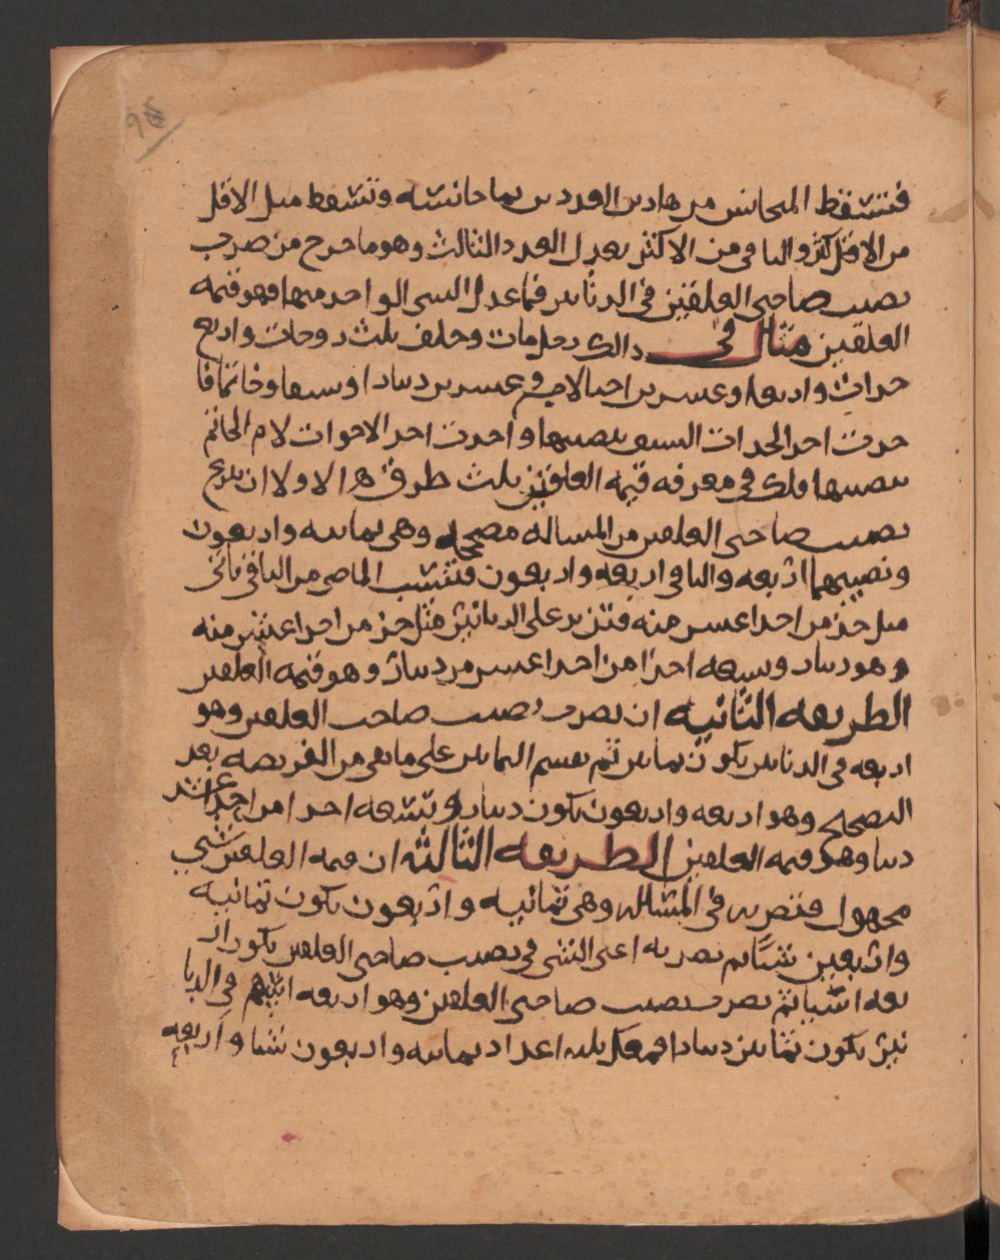 فتسقط المجانس من هادين العددين بما جانسه وتسقط مثل الاقل
من الاقل كثر والباقي من الاكثر يعدل العدد الثالث وهو ما خرج من ضرب
نصيب صاحبي العلقين في الدنانير فما عدل الشي الواحد منها فهو قيمة
العلقين مثال في دالك رجل مات وخلف ثلث زوجات واربع
جدات واربعا وعشرين اختا لام وعشرين دينارا وسيفا وخاتما فا
خدت احد الجدات السيف بنصيبها واخدت احد الاخوات لام الخاتم
بنصيبها فلك في معرفة قيمة العلقين ثلث طرق الاولا ان
نصيب صاحبي العلقين من المسالة مصححة وهي ثمانية واربعون
ونصيبهما اربعة والباقي اربعة واربعون فتنسب الماضي من الباقي تاتي
مثل جز من احدا عشر منه فتزيد على الدنانير مثل جز من احدا عشر منه
وهو دينار وتسعة اجزا من احدا عشر من دينار وهو قيمة العلقين
الطريقة الثانية ان تضرب نصيب صاحب العلقين وهو
اربعة في الدنانير يكون ثمانين ثم تقسم الثمانين على ما بقي من الفريضة بعد
التصحيح وهو اربعة واربعون يكون دينار وتسعة اجزا من احدا عشر
دينا وهو قيمة العلقين الطريقة الثالثة ان قيمة العلقين شي
مجهول فتضربه في المسالة وهي ثمانية واربعون يكون ثمانية
واربعين شيا ثم تضربه اعني الشي في نصيب صاحبي العلقين يكون ار
بعة اشيا ثم تضرب نصيب صاحبي العلقين وهو اربعة ايضا في الدنا
نير يكون ثمانين دينارا فمعك ثلثة اعداد ثمانية واربعون شيا واربعة